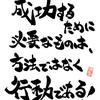 成功する
ために
必要なるのは、
方法ではなく
行動である!